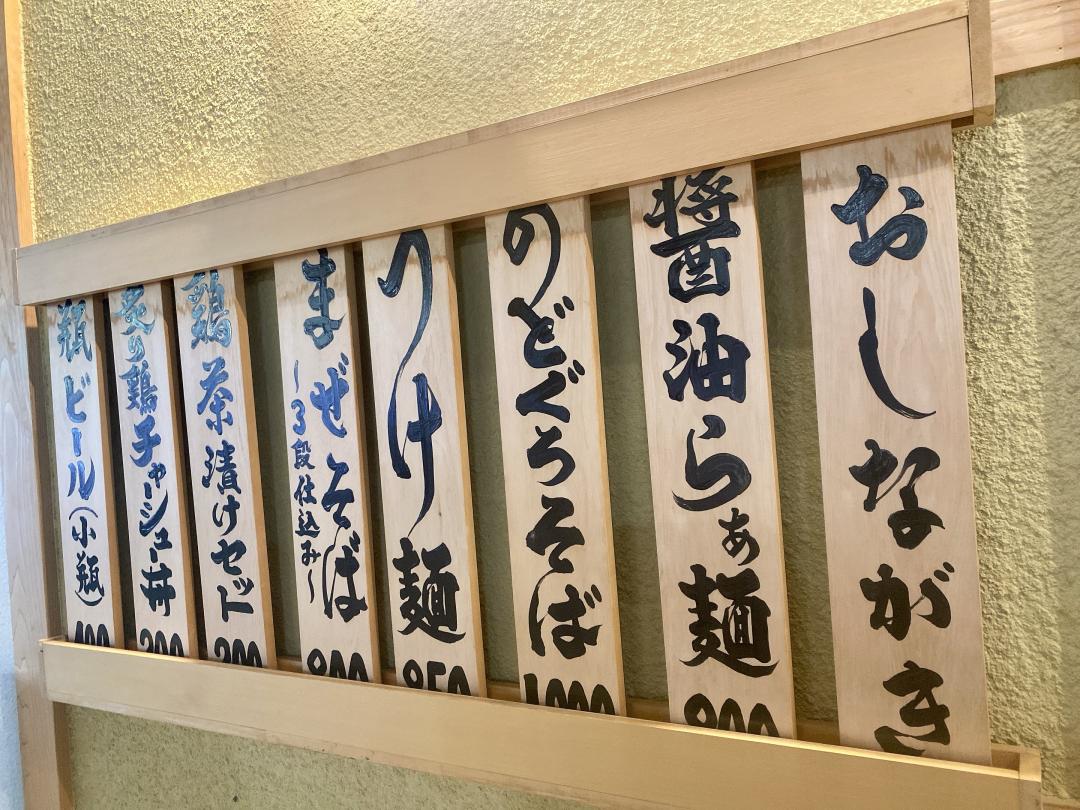 おしながき
醤油らぁ麺
のどぐろそば 1000
つけ麺 850
まぜそば
～3段仕込み～
鶏茶漬けセット
炙り鶏チャーシュー丼
瓶ビール(小瓶)